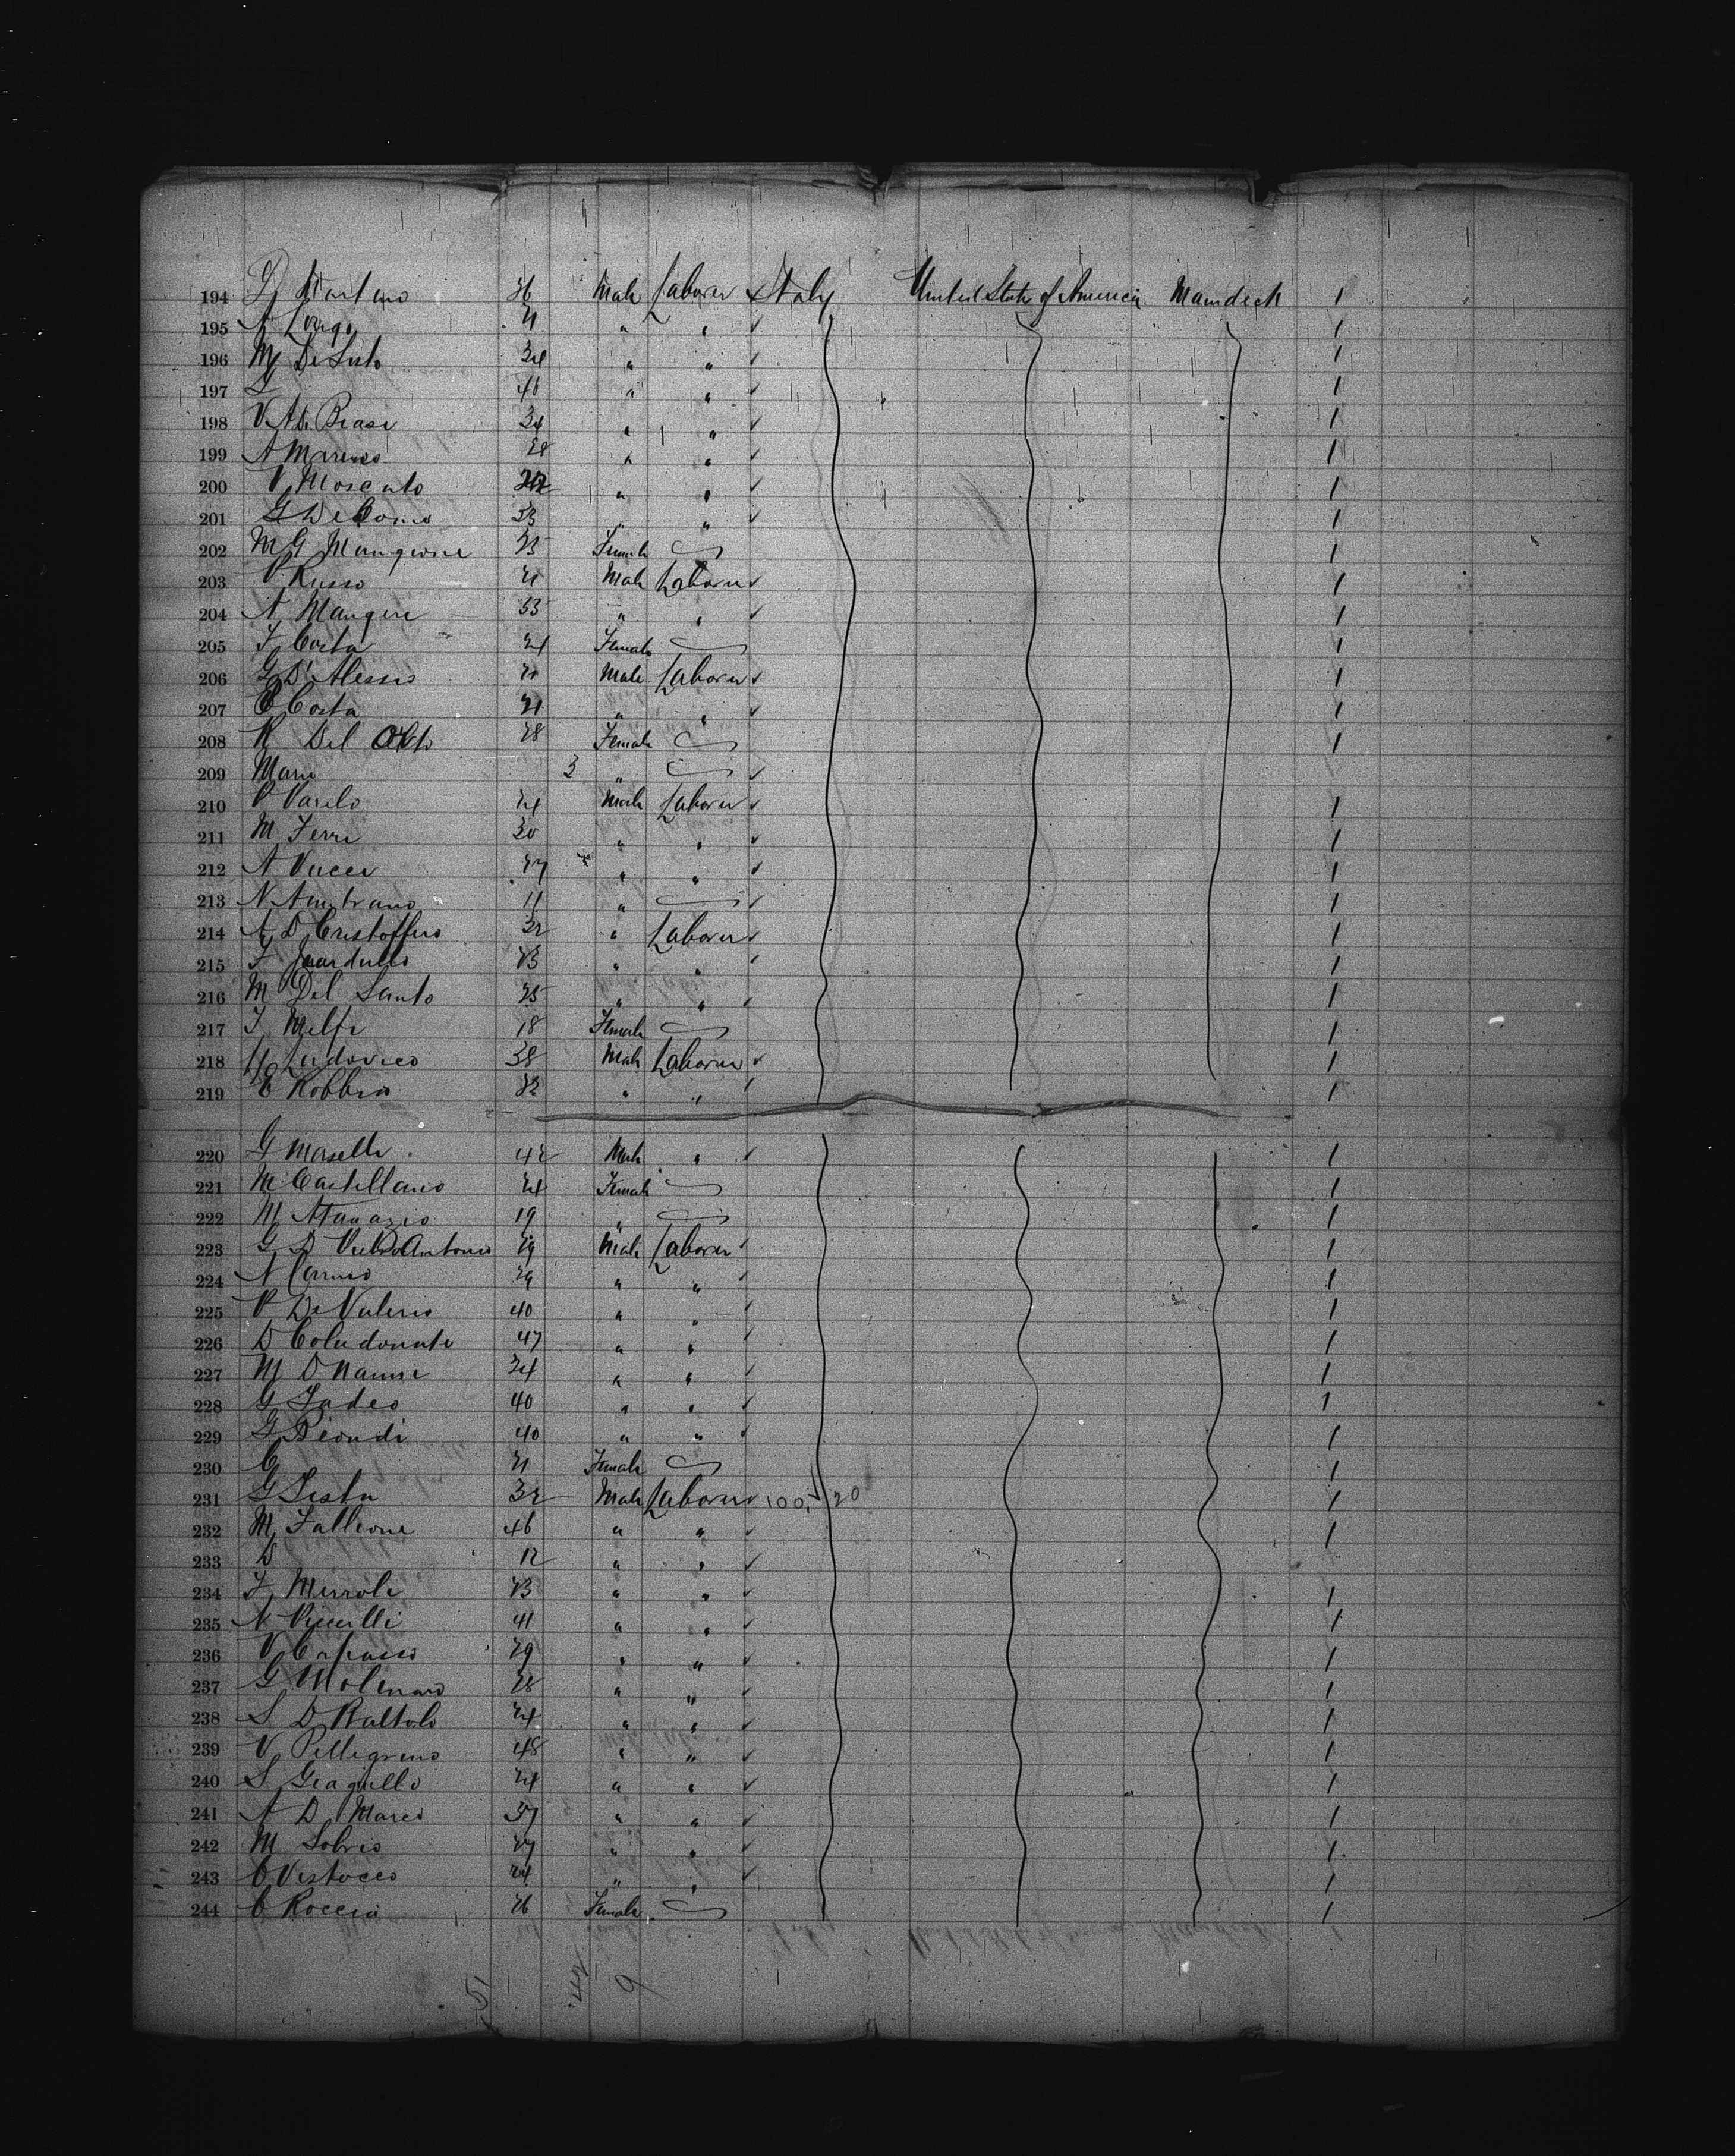 194 D Martino 26 Male Laborer ✓ Italy United State of America Maindeck 1
195 A Longo 21 " " ✓ 1
196 M Di Sisto 34 " " ✓ 1
197 G 46 " " ✓ 1
198 V A Di Biase 34 " " ✓ 1
199 A Marino 28 " " ✓ 1
200 V Moscato " " ✓ 1
201 G De Como 33 " " ✓ 1
202 M G Mangione 25 Female 1
203 P Russo 21 Male Laborer ✓ 1
204 A Mangine 33 " " ✓ 1
205 F Costa 24 Female 1
206 G D'Alessio 21 Male Laborer ✓ 1
207 C Costa 21 " " ✓ 1
208 R Del Otto 28 Female 1
209 Maria 3 " ✓
210 P Varilo 24 Male Laborer ✓ 1
211 M Ferri 30 " " ✓ 1
212 A Vucci 27 " " ✓ 1
213 N Amitrano 11 " ✓ 1
214 A D Cristoffero 32 " Laborer ✓ 1
215 F 23 " " ✓ 1
216 M Del Santo 25 " " ✓ 1
217 F Melfi 18 Female 1
218 Ludovico 38 Male Laborer ✓ 1
219 C Robbio 32 " " ✓ 1
220 G Maselli 42 Male " ✓ 1
221 M Castellano 24 Female 1
222 M Atanazio 19 " 1
223 G D Antonio 29 Male Laborer ✓ 1
224 N Caruso 29 " " ✓ 1
225 P De Valerio 40 " " ✓ 1
226 D Coladonato 47 " " ✓ 1
227 M D Nanni 34 " " ✓ 1
228 G Tadeo 40 " " ✓ 1
229 G Biondi 40 " " ✓ 1
230 C 21 Female 1
231 G Sista 32 Male Laborer ✓ 100, 20 1
232 M Fallione 46 " " ✓ 1
233 D 12 " " ✓
234 F Merrola 23 " " ✓ 1
235 N Viccilli 41 " " ✓ 1
236 V Capasso 29 " " ✓ 1
237 G Molinaro 28 " " ✓ 1
238 S D Bartolo 24 " " ✓ 1
239 V Pellegrino 48 " " ✓ 1
240 S Giagullo 24 " " ✓ 1
241 A D Marco 37 " " ✓ 1
242 M Sobrio 27 " " ✓ 1
243 C Vistocco 24 " " ✓ 1
244 C Roccia 26 Female 1